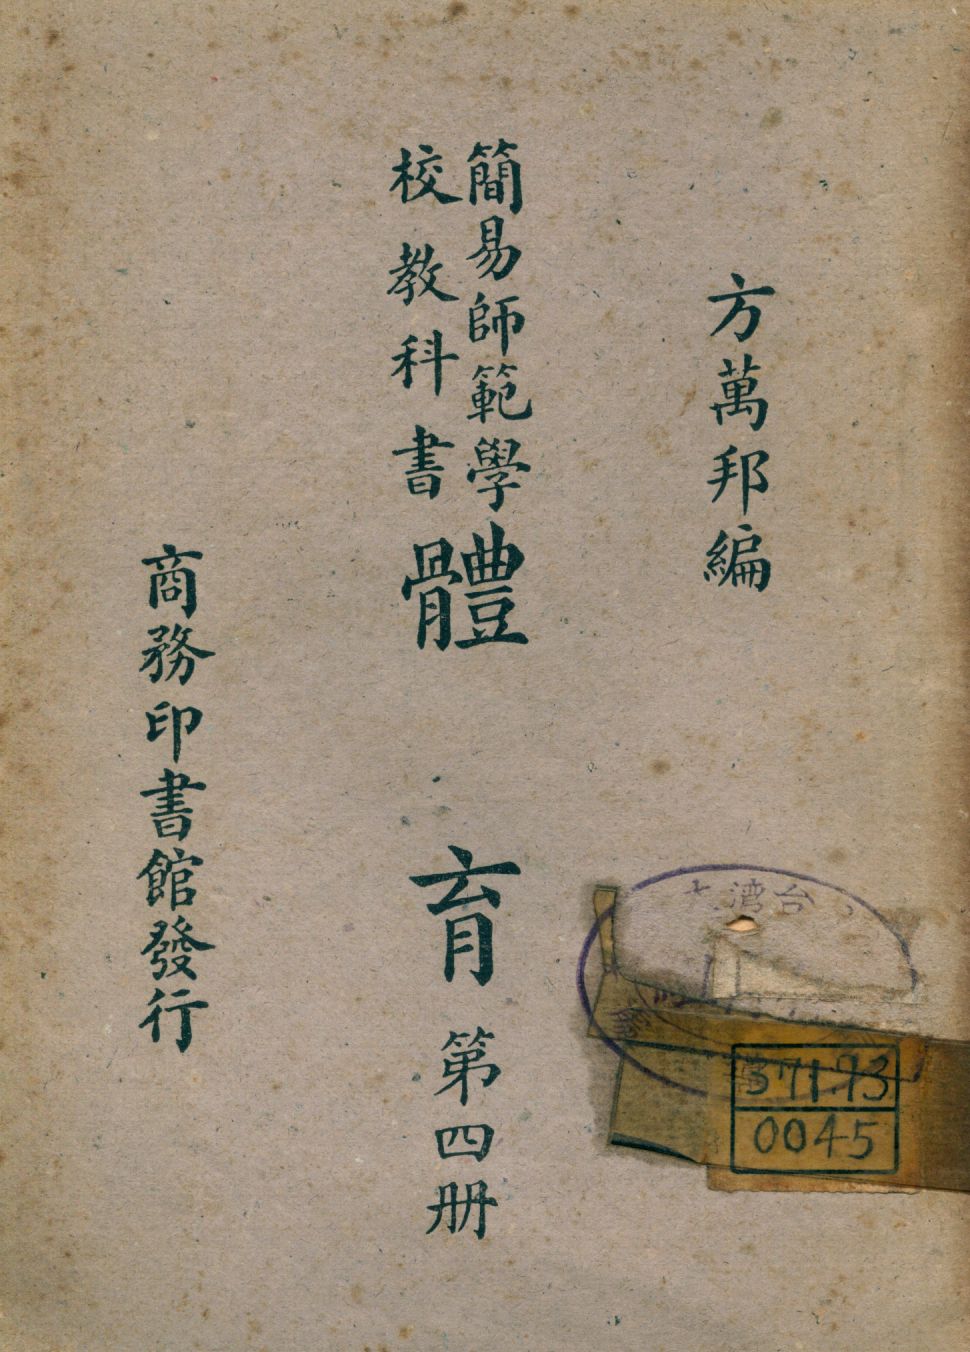 方萬邦編
簡易師範學
校教科書
體育第四册
商務印書館發行
台湾
37193
0045